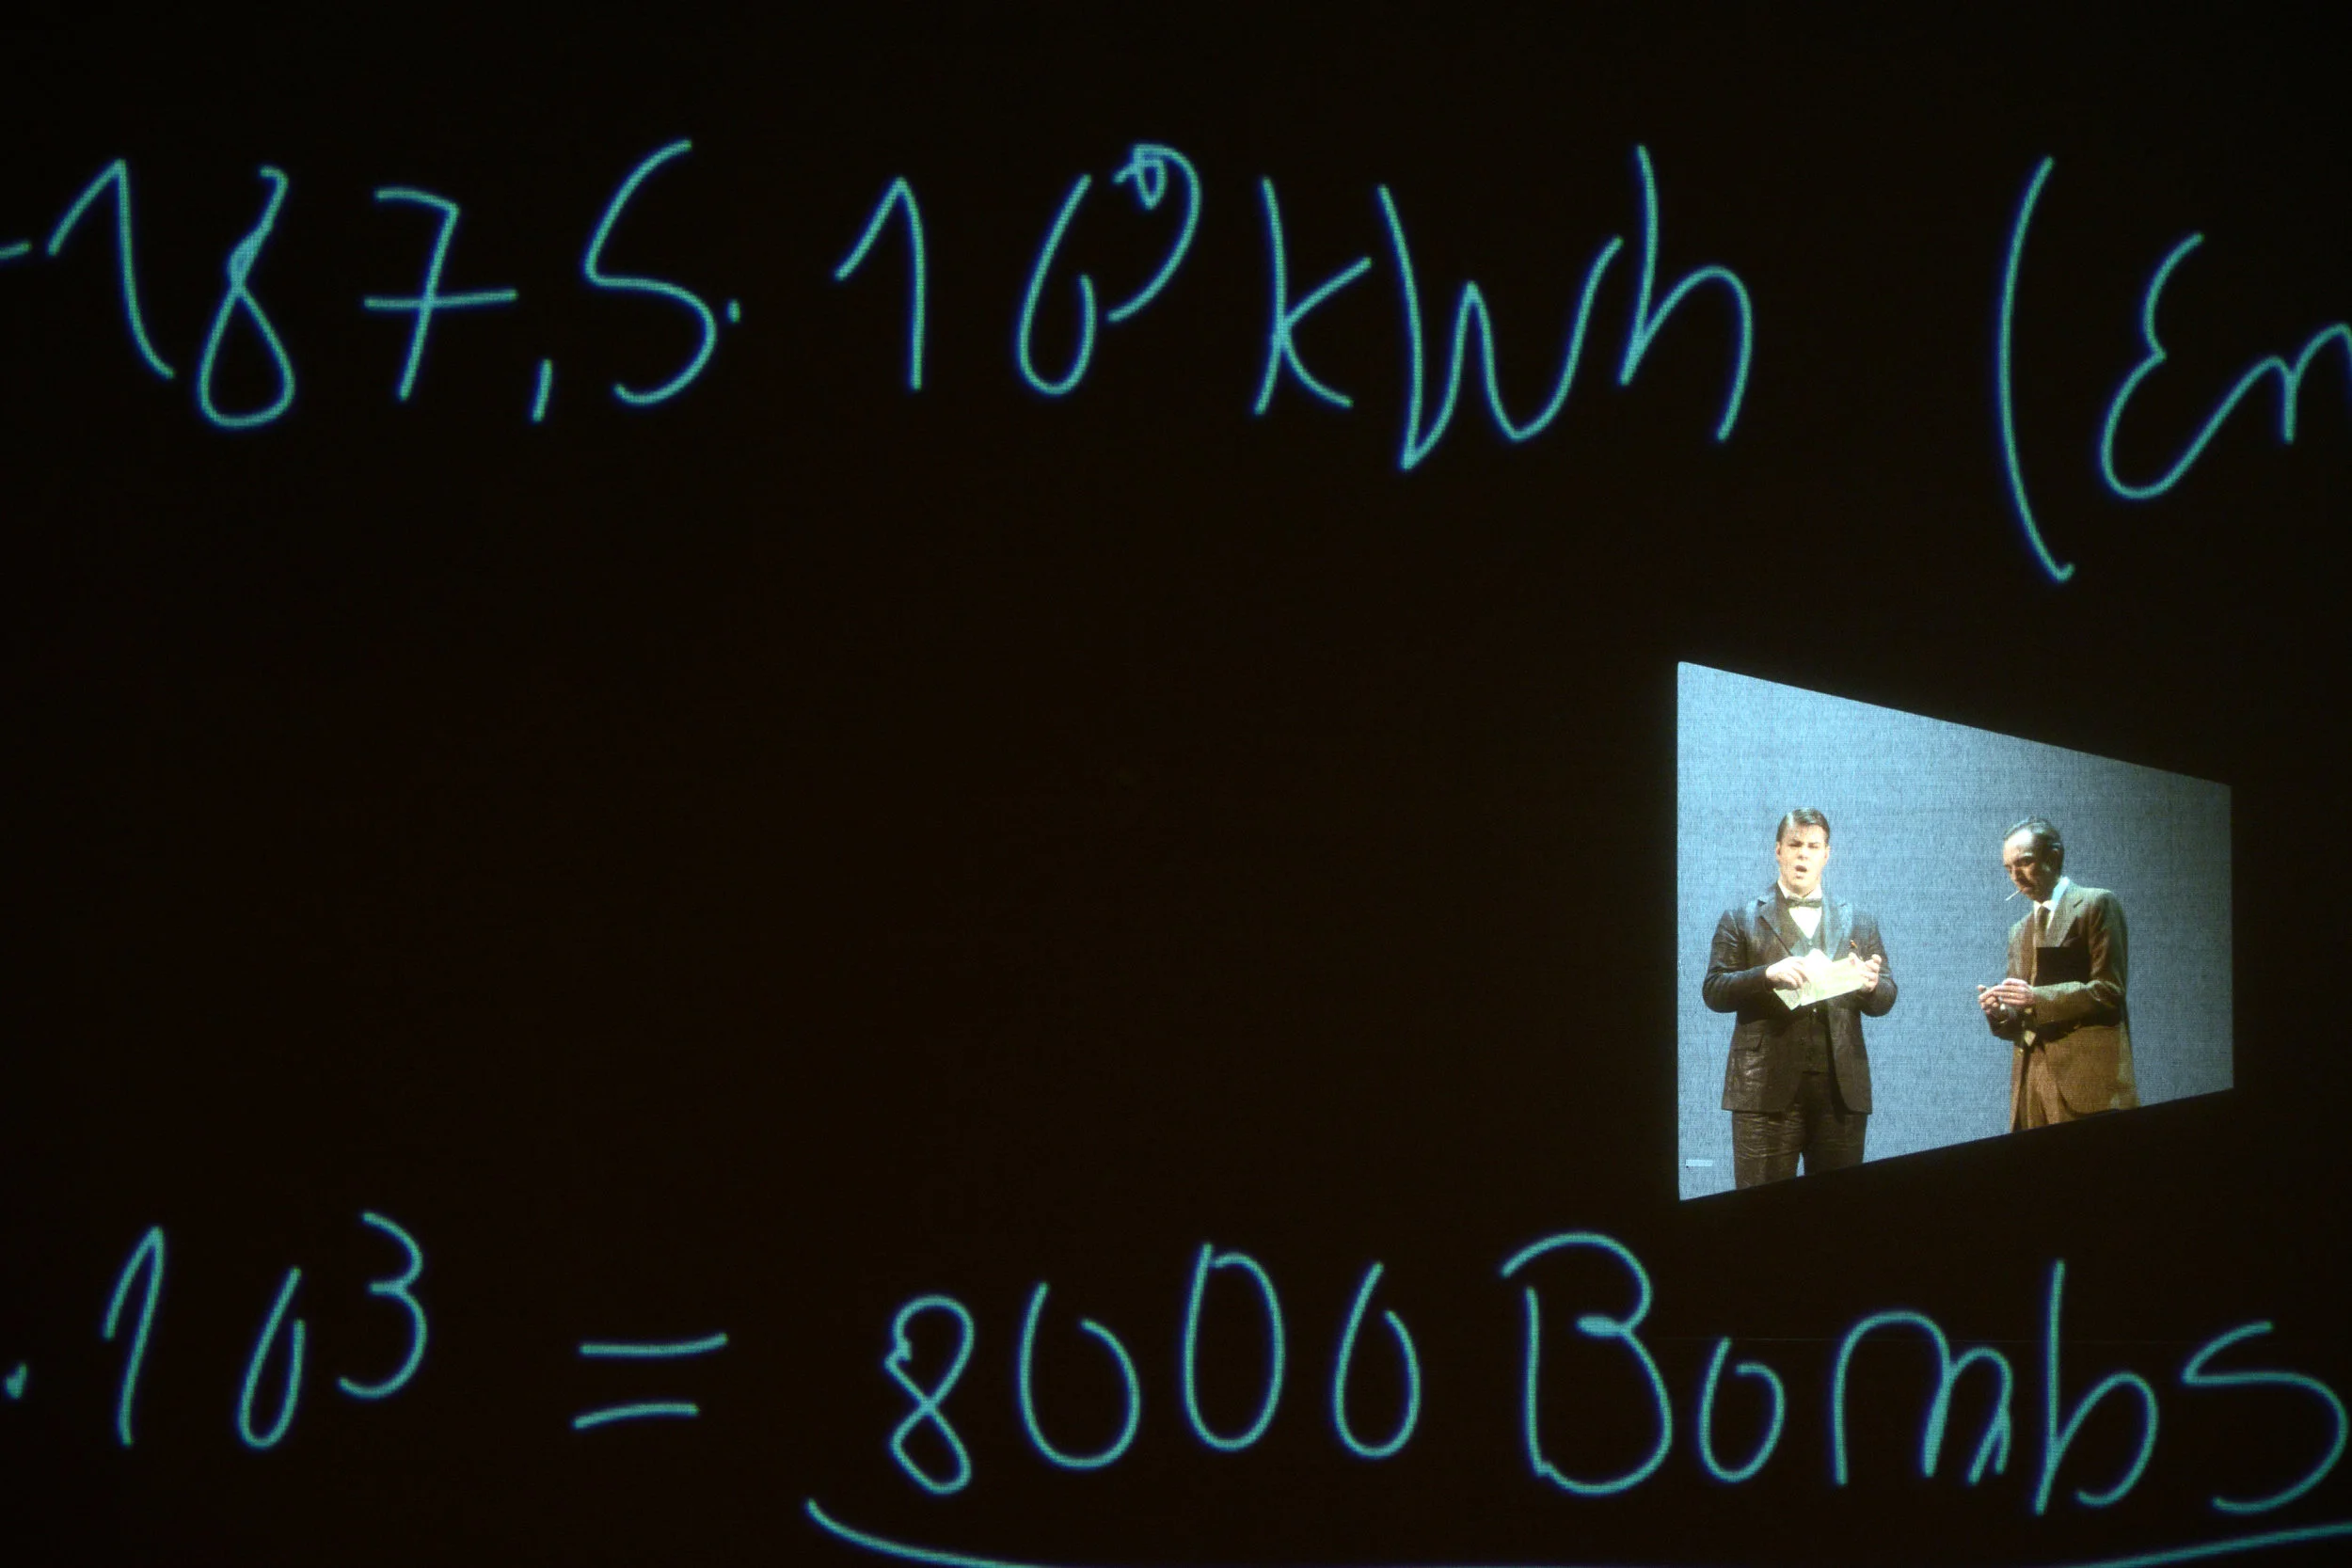 -187,5·10⁹ kWh (En
·10³ = 8000 Bombs